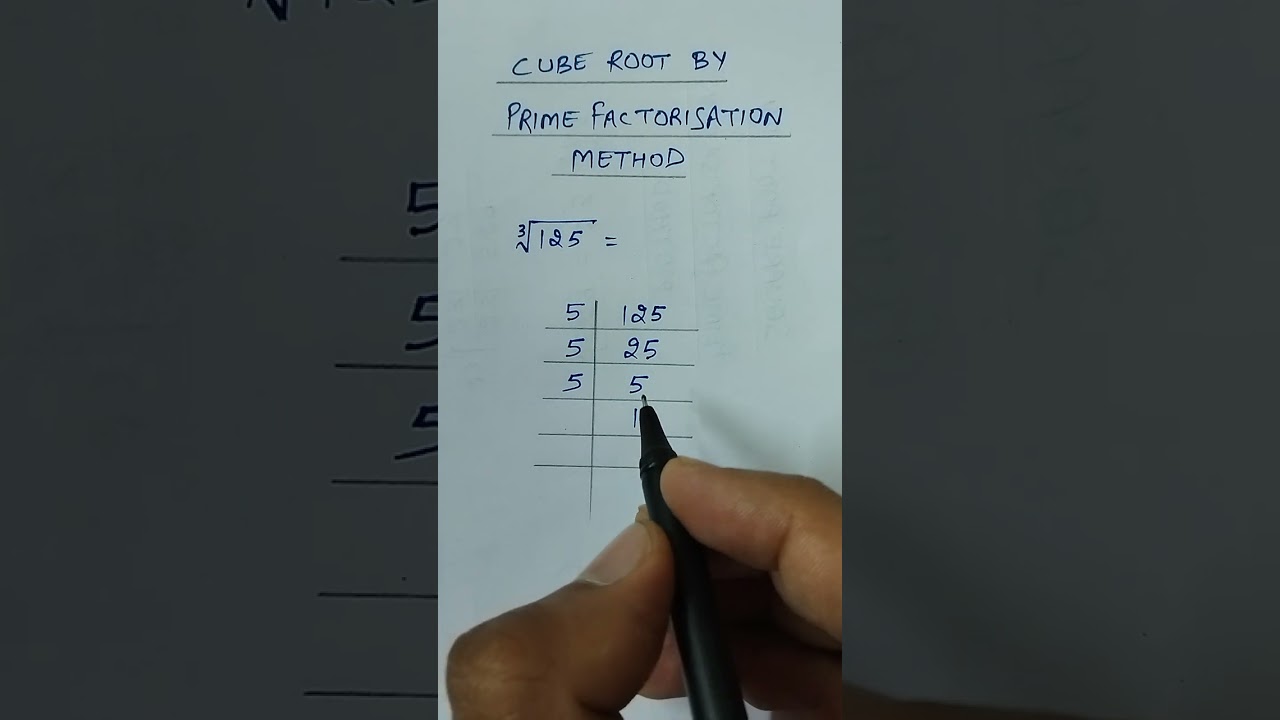 CUBE ROOT BY
PRIME FACTORISATION
METHOD
∛125 =
5 | 125
5 | 25
5 | 5
1